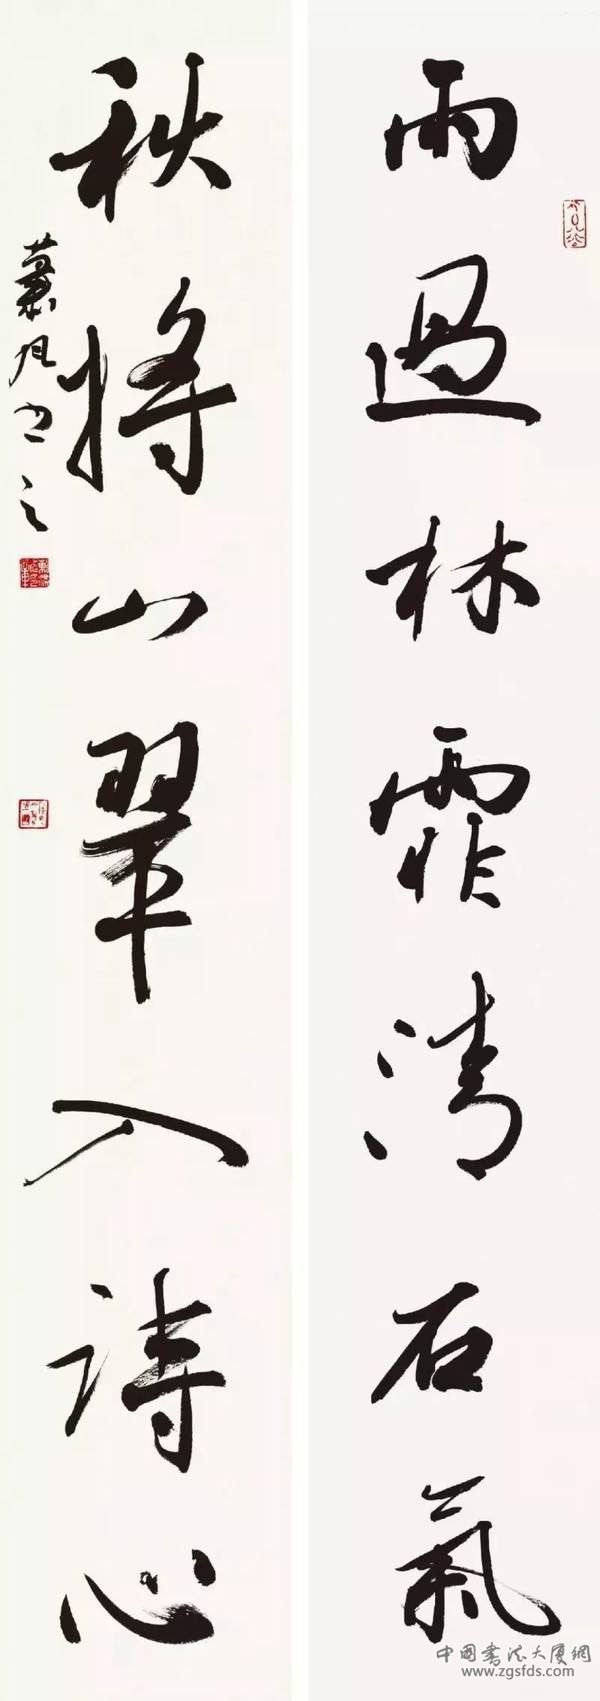 雨過林霏清石氣
秋將山翠入詩心
书之
中國書法大廈網
www.zgsfds.com